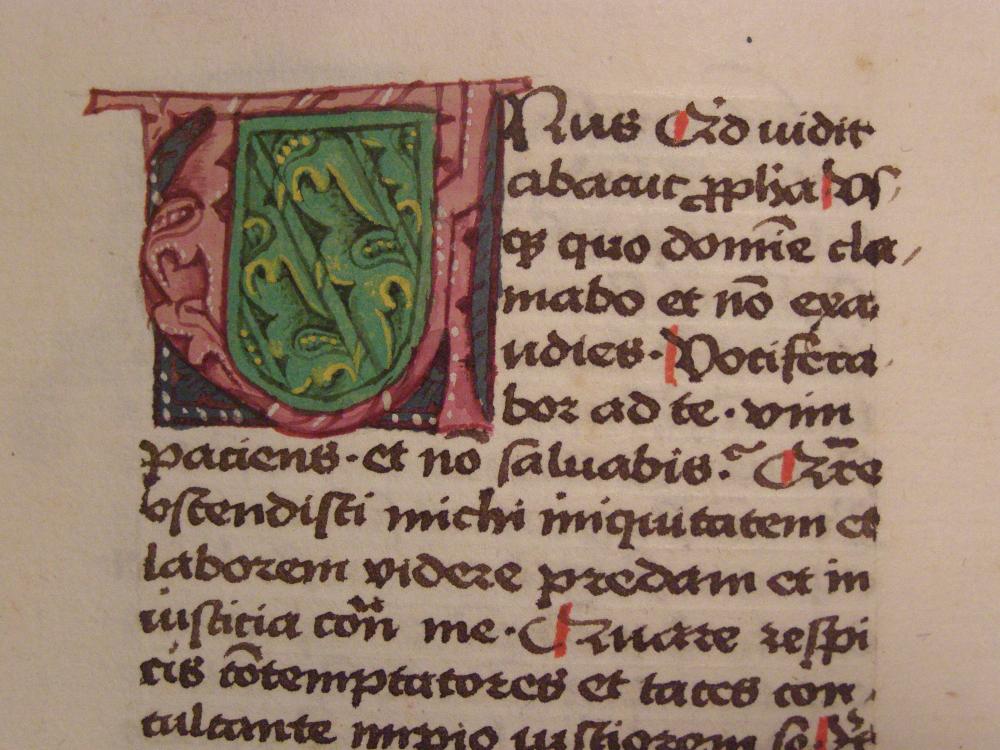 ONus Qd uidit
abacuc ꝓpha vs
qꝫ quo domīe cla
mabo et nō exa
udies. Vocifera
bor ad te. vim
paciens. et nō saluabis? Qare
ostendisti michi iniquitatem et
laborem videre predam et in
iusticia cōn me. Quare respi
cis cōtemptatores et taces con
culcante impio iustiorem se